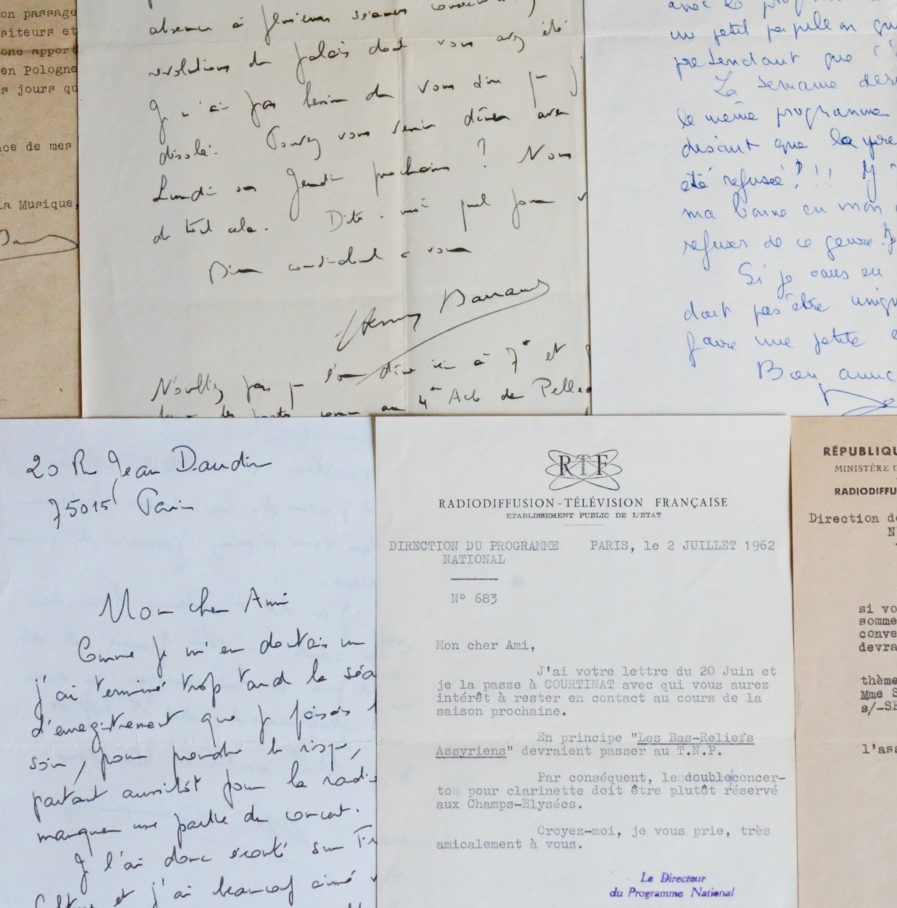 on passage
siteurs et
onc apport
en Pologne
s jours qu
ce de mes
la Musique,
absence à plusieurs séances
révolutions du palais dont vous avez été
Je n'ai pas besoin de vous dire
désolé. Pouvez vous venir dîner avec
Lundi ou Jeudi prochain ? Nous
de tout cela. Dites-moi quel jour
Bien cordialement à vous
Henry Barraud
N'oubliez pas
4e Acte de
avec le programme
un petit papillon
prétendant que
La semaine
le même programme
disant que la
été refusée ? !!!
refuser de ce genre.
Si je
doit pas être
faire une petite
Bon
20 Rue Jean Daudin
75015 Paris
Mon cher Ami
Comme je m'en doutais un
j'ai terminé trop tard la
d'enregistrement que je faisais
soir, pour prendre le risque,
partant aussitôt pour la
manquer une partie du concert.
Je l'ai donc écouté sur
et j'ai beaucoup aimé
RTF
RADIODIFFUSION-TÉLÉVISION FRANÇAISE
ETABLISSEMENT PUBLIC DE L'ETAT
DIRECTION DU PROGRAMME PARIS, le 2 JUILLET 1962
NATIONAL
N° 683
Mon cher Ami,
J'ai votre lettre du 20 Juin et
je la passe à COURTINAT avec qui vous aurez
intérêt à rester en contact au cours de la
saison prochaine.
En principe "Les Bas-Reliefs
Assyriens" devraient passer au T.N.P.
Par conséquent, le double concer-
to pour clarinette doit être plutôt réservé
aux Champs-Elysées.
Croyez-moi, je vous prie, très
amicalement à vous.
Le Directeur
du Programme National
RÉPUBLIQU
MINISTÈRE
RADIODIFFU
Direction de
N
si vo
somme
conve
devra
thème
Mme S
s/-Sh
l'ass